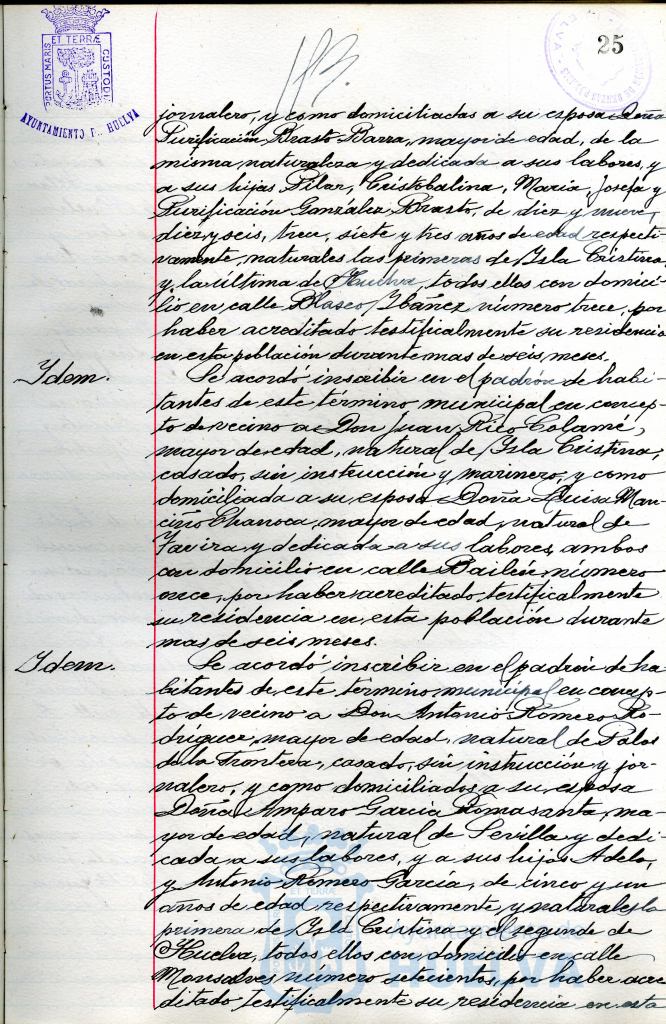 PORTUS MARIS ET TERRÆ CUSTODI
AYUNTAMIENTO HUELVA
25
jornalero, y como domiciliadas a su esposa Doña
Purificación Brasto Barra, mayor de edad, de la
misma naturaleza y dedicada a sus labores, y
a sus hijas Pilar, Cristobalina, María, Josefa y
Purificación González Brasto, de diez y nueve,
diez y seis, trece, siete y tres años de edad respecti-
vamente, naturales las primeras de Isla Cristina
y la última de Huelva, todos ellos con domici-
lio en calle Blasco Ibáñez número trece, por
haber acreditado testificalmente su residencia
en esta población durante mas de seis meses.
Idem.
Se acordó inscribir en el padrón de habi-
tantes de este término municipal en concep-
to de vecino a Don Juan Rico Colamé,
mayor de edad, natural de Isla Cristina,
casado, sin instrucción y marinero, y como
domiciliada a su esposa Doña Luisa Man-
ciño Chanoca, mayor de edad, natural de
Tavira y dedicada a sus labores, ambos
con domicilio en calle Bailén, número
once, por haber acreditado testificalmente
su residencia en esta población durante
mas de seis meses.
Idem.
Se acordó inscribir en el padrón de ha-
bitantes de este término municipal en concep-
to de vecino a Don Antonio Romero Ro-
dríguez, mayor de edad, natural de Palos
de la Frontera, casado, sin instrucción y jor-
nalero, y como domiciliados a su esposa
Doña Amparo García Romasanta, ma-
yor de edad, natural de Sevilla y dedi-
cada a sus labores, y a sus hijos Adela,
y Antonio Romero García, de cinco y un
años de edad respectivamente, y naturales la
primera de Isla Cristina y el segundo de
Huelva, todos ellos con domicilio en calle
número setecientos, por haber acre
ditado testificalmente su residencia en esta